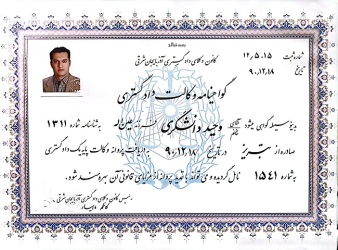 بسمه تعالی
شماره ثبت ۱۲,۵,۱۵
تاریخ ۹۰,۱۲,۱۸
کانون وکلای دادگستری آذربایجان شرقی
گواهینامه وکالت دادگستری
بدینوسیله گواهی میشود آقای خانم وحید دانشگری فرزند عین‌اله به شناسنامه شماره ۱۳۱۱
صادره از تبریز در تاریخ ۹۰,۱۲,۱۸ به دریافت پروانه وکالت پایه یک دادگستری
به شماره ۱۵۴۱ نائل گردیده و می تواند با تمدید پروانه از مزایای قانونی آن بهره مند شود.
رئیس کانون وکلای دادگستری آذربایجان شرقی